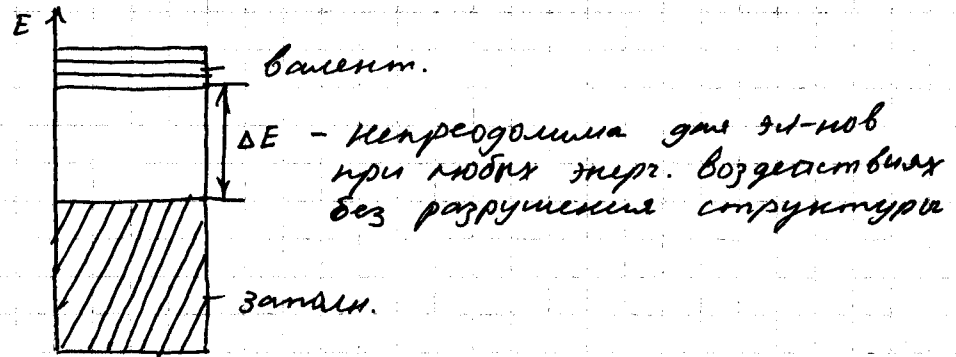 E
валент.
ΔE - непреодолима для эл-нов
при любых энерг. воздействиях
без разрушения структуры
заполн.